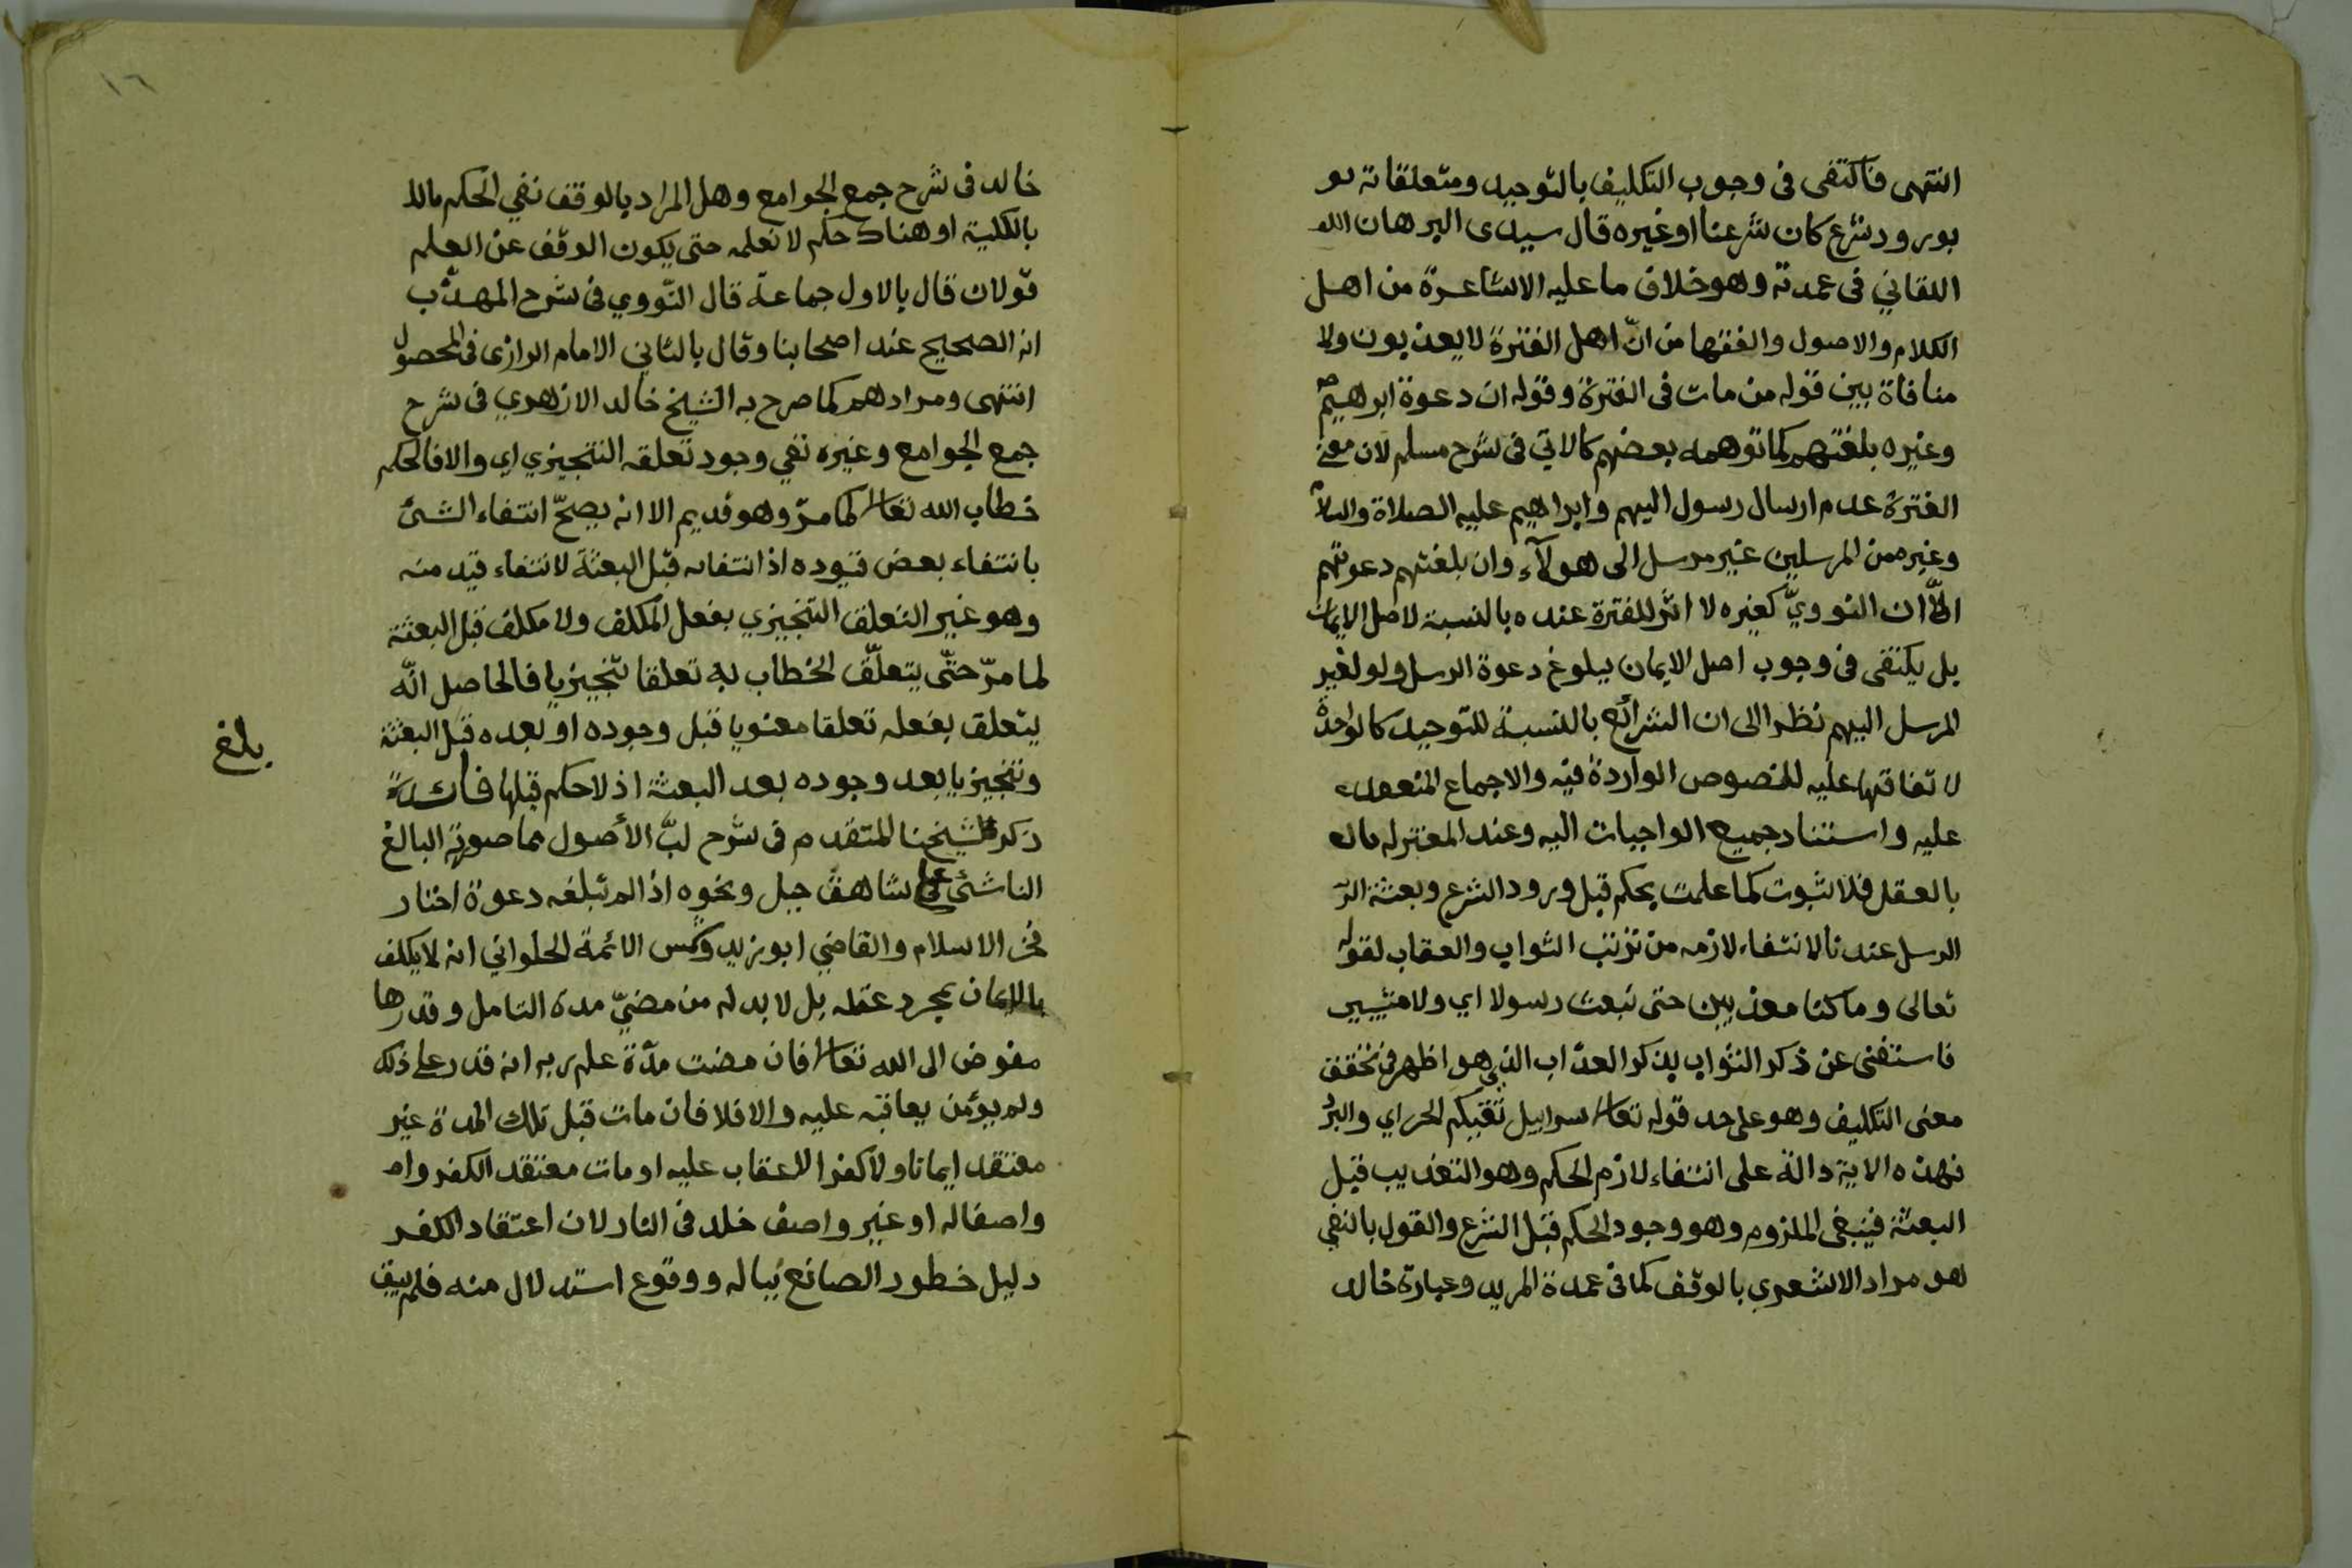 انتهى فاكتفى فى وجوب التكليف بالتوحيد ومتعلقاته بو
بورود شرع كان شرعنا او غيره قال سيدى البرهان الله
اللقاني فى عمدته وهو خلاف ما عليه الاشاعرة من اهل
الكلام والاصول والفقها من انّ اهل الفترة لا يعذبون ولا
منافاة بين قوله من مات فى الفترة وقوله ان دعوة ابرهيم
وغيره بلغتهم كما توهمه بعضهم كالابي فى شرح مسلم لان معنى
الفترة عدم ارسال رسول اليهم وابراهيم عليه الصلاة والسلام
وغيره من المرسلين غير مرسل الى هولآء وان بلغتهم دعوتهم
الّا ان النوويّ كغيره لا اثر للفترة عنده بالنسبة لاصل الايمان
بل يكتفى فى وجوب اصل الايمان ببلوغ دعوة الرسل ولو لغير
المرسل اليهم نظرا الى ان الشرائع بالنسبة للتوحيد كالواحدة
لا تفاقها عليه للنصوص الواردة فيه والاجماع المنعقد
عليه واستناد جميع الواجبات اليه وعند المعتزله
بالعقل فلا ثبوت كما علمت بحكم قبل ورود الشرع وبعثة الر
الرسل عندنا لانتفاء لازمه من ترتب الثواب والعقاب لقوله
تعالى وما كنا معذبين حتى نبعث رسولا اي ولا مثيبين
فاستغنى عن ذكر الثواب بذكر العذاب الذي هو اظهر فى تحقق
معنى التكليف وهو على حد قوله تعالى سرابيل تقيكم الحر اي والبرد
فهذه الاية دالة على انتفاء لازم الحكم وهو التعذيب قبل
البعثة فينبغى الملزوم وهو وجود الحكم قبل الشرع والقول بالنفي
هو مراد الاشعري بالوقف كما فى عمدة المريد وعبارة خالد
١٦
خالد فى شرح جمع الجوامع وهل المراد بالوقف نفي الحكم
بالكلية او هناك حكم لا نعلمه حتى يكون الوقف عن العلم
قولان قال بالاول جماعة قال النّووي فى شرح المهذّب
انه الصحيح عند اصحابنا وقال بالثاني الامام الرازى فى المحصول
انتهى ومرادهم كما صرح به الشيخ خالد الازهري فى شرح
جمع الجوامع وغيره نفي وجود تعلقه التنجيزي اي والا فالحكم
خطاب الله تعالى كما مرّ وهو قديم الا انه يصحّ انتفاء الشئ
بانتفاء بعض قيوده اذ انتفائه قبل البعثة لانتفاء قيد منه
وهو غير التعلق التنجيزي بفعل المكلف ولا مكلف قبل البعثة
لما مرّ حتّى يتعلّق الخطاب به تعلقا تنجيزيا فالحاصل انّه
يتعلق بفعله تعلقا معنويا قبل وجوده او بعده قبل البعثة
وتنجيزيا بعد وجوده بعد البعثة اذ لا حكم قبلها فائدة
ذكر شيخنا المتقدم فى شرح لبّ الأصول مما صورته البالغ
الناشئ على شاهق جبل ونحوه اذا لم تبلغه دعوة اختار
فخر الاسلام والقاضي ابو زيد وشمس الائمة الحلواني انه لا يكلف
بالايمان بمجرد عقله بل لا بد له من مضيّ مدة التامل وقدرها
مفوض الى الله تعالى فان مضت مدّة علم ربه انه قدر على ذلك
ولم يؤمن يعاقبه عليه والا فلا فان مات قبل تلك المدة غير
معتقد ايمانا ولا كفرا لا عقاب عليه او مات معتقد الكفر وا
واصفا له او غير واصف خلد فى النار لان اعتقاد الكفر
دليل خطور الصانع بباله ووقوع استدلال منه فلم يبق
بلغ